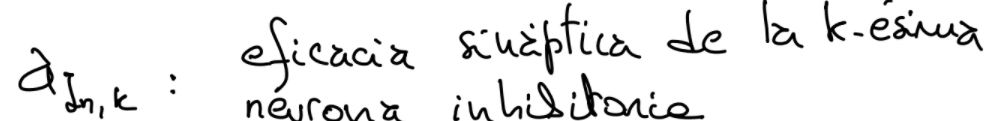 a_{In,k} : eficacia sináptica de la k-ésima
neurona inhibitoria